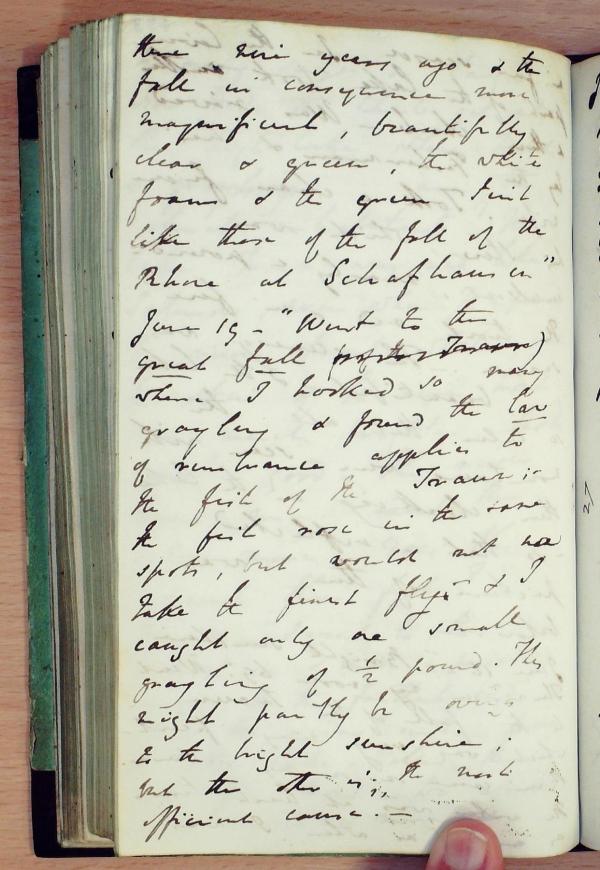 there nine years ago & the
fall in consequence more
magnificent, beautifully
clear & green, the white
foam & the green tint
like those of the fall of the
Rhine at Schafhausen"
June 19 - "Went to the
great fall (of the Traun)
where I hooked so many
grayling & found the law
of remembrance applies to
the fish of the Traun;
the fish rose in the same
spots, but would not
take the finest flys & I
caught only one small
grayling of ½ pound. This
might partly be owing
to the bright sunshine;
but the other is, the most
efficient cause. —
27